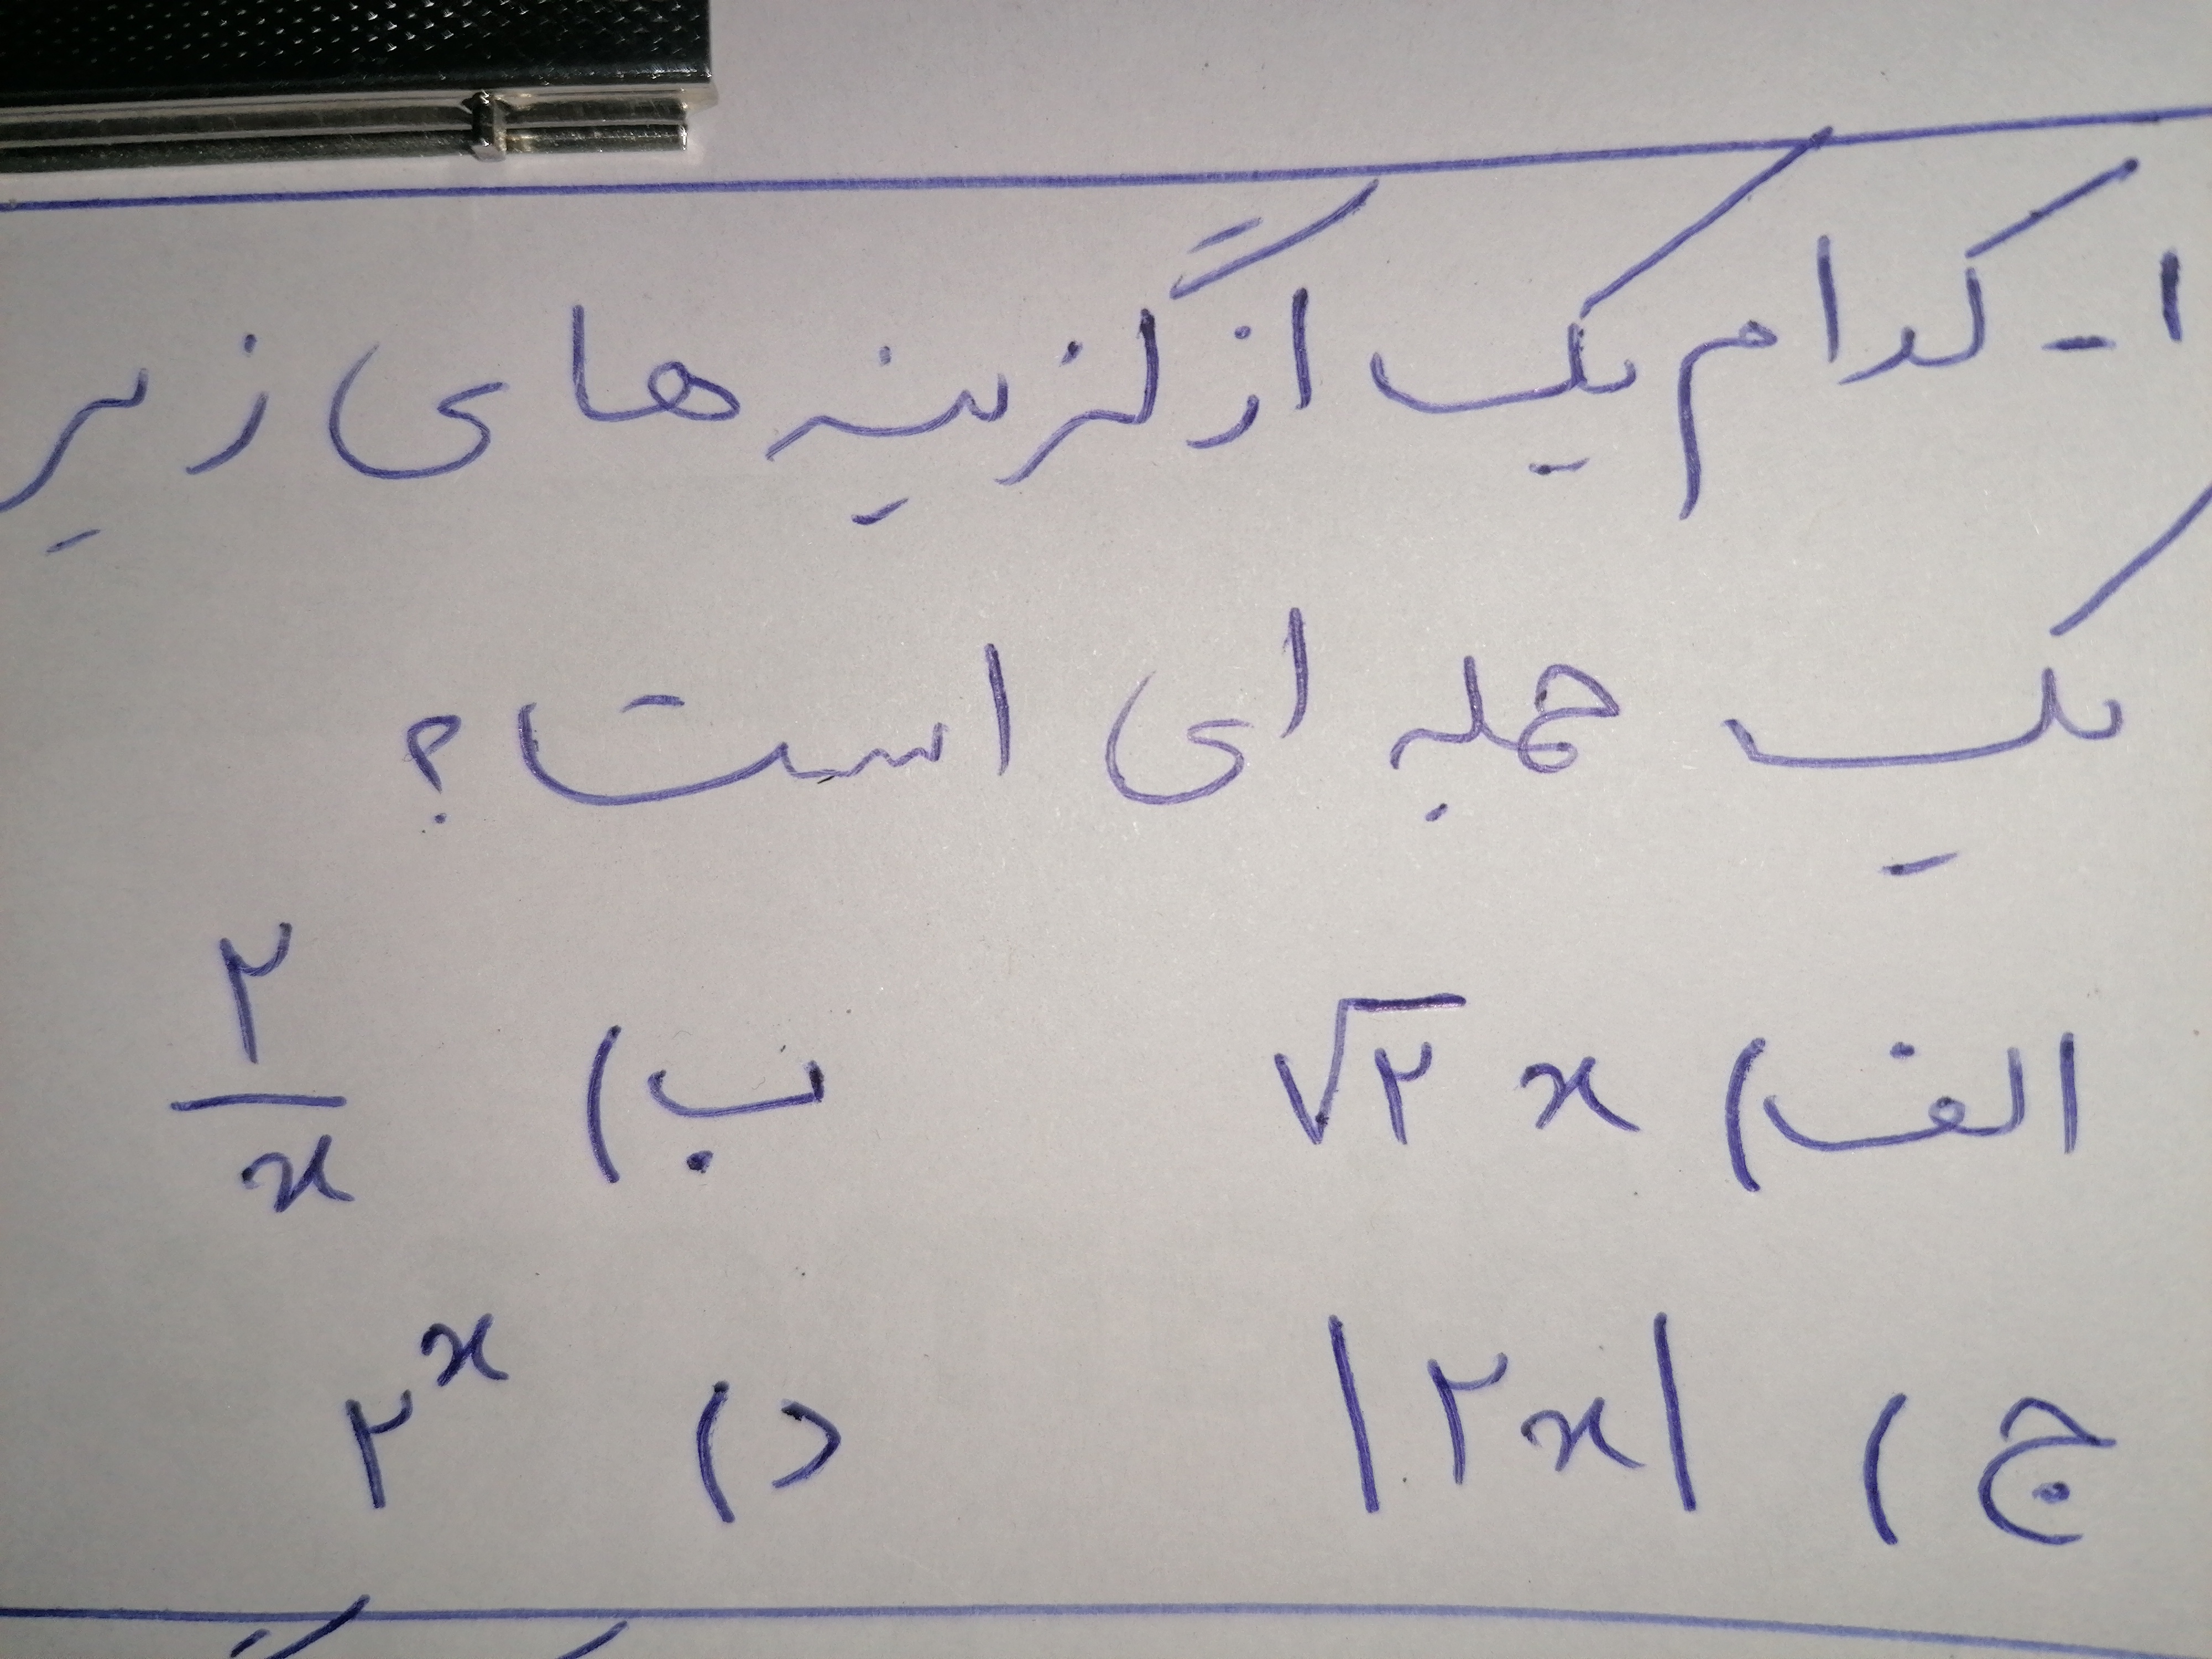 ۱- کدام یک از گزینه های زیر
یک جمله ای است؟
الف) √۲ x ب) ۲/x
ج) |۲x| د) ۲^x